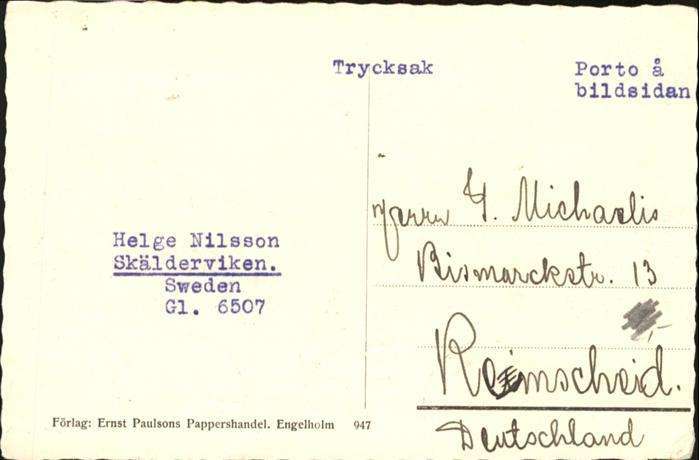 Trycksak
Porto å
bildsidan
Helge Nilsson
Skälderviken.
Sweden
Gl. 6507
Herrn G. Michaelis
Bismarckstr. 13
Remscheid.
Deutschland
Förlag: Ernst Paulsons Pappershandel. Engelholm 947